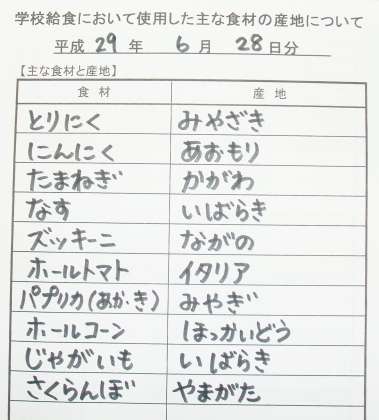 学校給食において使用した主な食材の産地について
平成 29 年 6 月 28 日分
【主な食材と産地】
食材 産地
とりにく みやざき
にんにく あおもり
たまねぎ かがわ
なす いばらき
ズッキーニ ながの
ホールトマト イタリア
パプリカ(あか・き) みやぎ
ホールコーン ほっかいどう
じゃがいも いばらき
さくらんぼ やまがた